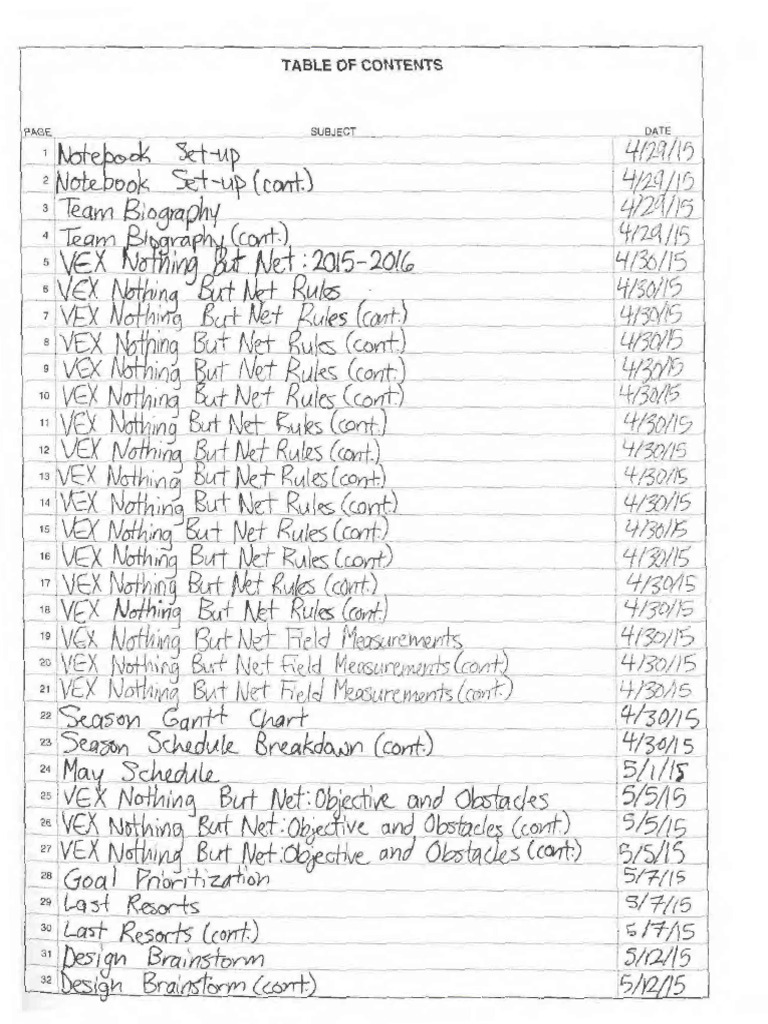 TABLE OF CONTENTS
PAGE SUBJECT DATE
1 Notebook Set-up 4/29/15
2 Notebook Set-up (cont.) 4/29/15
3 Team Biography 4/29/15
4 Team Biography (cont.) 4/29/15
5 VEX Nothing But Net: 2015-2016 4/30/15
6 VEX Nothing But Net Rules 4/30/15
7 VEX Nothing But Net Rules (cont.) 4/30/15
8 VEX Nothing But Net Rules (cont.) 4/30/15
9 VEX Nothing But Net Rules (cont.) 4/30/15
10 VEX Nothing But Net Rules (cont.) 4/30/15
11 VEX Nothing But Net Rules (cont.) 4/30/15
12 VEX Nothing But Net Rules (cont.) 4/30/15
13 VEX Nothing But Net Rules (cont.) 4/30/15
14 VEX Nothing But Net Rules (cont.) 4/30/15
15 VEX Nothing But Net Rules (cont.) 4/30/15
16 VEX Nothing But Net Rules (cont) 4/30/15
17 VEX Nothing But Net Rules (cont.) 4/30/15
18 VEX Nothing But Net Rules (cont.) 4/30/15
19 VEX Nothing But Net Field Measurements 4/30/15
20 VEX Nothing But Net Field Measurements (cont.) 4/30/15
21 VEX Nothing But Net Field Measurements (cont.) 4/30/15
22 Season Gantt Chart 4/30/15
23 Season Schedule Breakdown (cont.) 4/30/15
24 May Schedule 5/1/15
25 VEX Nothing But Net: Objective and Obstacles 5/5/15
26 VEX Nothing But Net: Objective and Obstacles (cont.) 5/5/15
27 VEX Nothing But Net: Objective and Obstacles (cont.) 5/5/15
28 Goal Prioritization 5/7/15
29 Last Resorts 5/7/15
30 Last Resorts (cont.) 5/7/15
31 Design Brainstorm 5/12/15
32 Design Brainstorm (cont.) 5/12/15